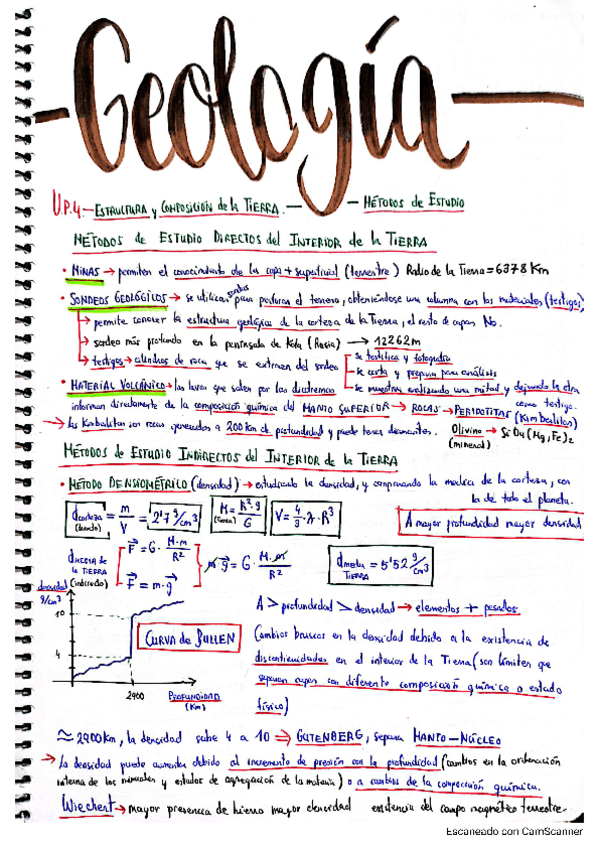 Geología
U.P.4.- ESTRUCTURA y COMPOSICIÓN de la TIERRA. - - MÉTODOS de ESTUDIO
MÉTODOS de ESTUDIO DIRECTOS del INTERIOR de la TIERRA
• MINAS → permiten el conocimiento de la capa + superficial (terrestre) Radio de la Tierra = 6378 Km
• SONDEOS GEOLÓGICOS → se utilizan sondas para perforar el terreno, obteniéndose una columna con los materiales (testigos)
→ permite conocer la estructura geológica de la corteza de la Tierra, el resto de capas No.
→ sondeo más profundo en la península de Kola (Rusia) → 12262m
→ testigos → cilindros de roca que se extraen del sondeo
se testifica y fotografía
se corta y prepara para análisis
se muestrea analizando una mitad y dejando la otra como testigo.
• MATERIAL VOLCÁNICO → las lavas que salen por las diatremas
informan directamente de la composición química del MANTO SUPERIOR → ROCAS → PERIDOTITAS (Kimberlitas)
→ las Kimberlitas son rocas generadas a 200 Km de profundidad y puede tener diamantes. Olivino → SiO4 (Mg, Fe)2
(mineral)
MÉTODOS de ESTUDIO INDIRECTOS del INTERIOR de la TIERRA
• MÉTODO DENSIOMÉTRICO (densidad) → estudiando la densidad, y comparando la medida de la corteza, con
la de todo el planeta.
d corteza = m/V = 2'7 g/cm³ M (Tierra) = R²·g/G V = 4/3·π·R³
A mayor profundidad mayor densidad
d MEDIA de la TIERRA (indirecto) F = G · M·m/R² m·g = G · M·m/R² d media TIERRA = 5'52 g/cm³
F = m·g
densidad g/cm³
10
4
2900
PROFUNDIDAD (Km)
CURVA de BULLEN
A > profundidad > densidad → elementos + pesados
Cambios bruscos en la densidad debido a la existencia de
discontinuidades en el interior de la Tierra (son límites que
separan capas con diferente composición química o estado
físico)
≈ 2900 Km, la densidad sube 4 a 10 ⇒ GUTENBERG, separa MANTO-NÚCLEO
→ La densidad puede aumentar debido al incremento de presión con la profundidad (cambios en la ordenación
interna de los minerales y estados de agregación de la materia) o a cambios de la composición química.
Wiechert → mayor presencia de hierro mayor densidad existencia del campo magnético terrestre.
Escaneado con CamScanner